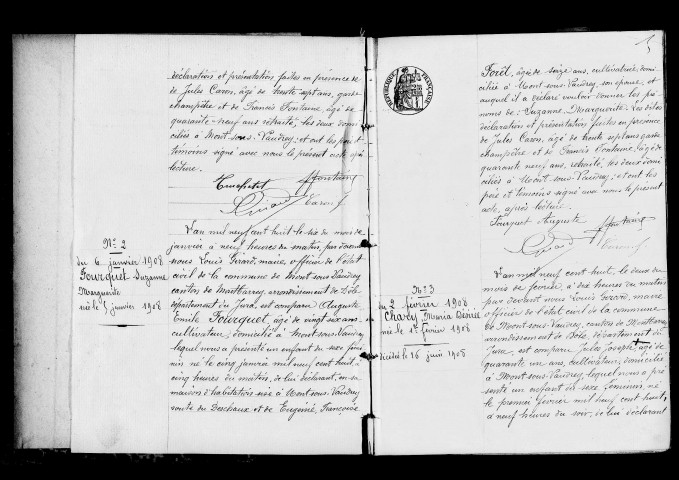 déclaration et présentation faites en présence de
de Jules Caron, âgé de trente sept ans, garde
champêtre et de Francis Fontaine, âgé de
quarante-neuf ans retraité, les deux domi
ciliés à Mont-sous-Vaudrey; et ont les père et
témoins signé avec nous le présent acte après
lecture.
Ffontaine
Girard Caron J
Nº 2
du 6 janvier 1908
Fourquet Suzanne
Marguerite
née le 5 janvier 1908
L'an mil neuf cent huit le six du mois de
janvier à neuf heures du matin, par devant
nous Louis Girard, maire, officier de l'état
civil de la commune de Mont sous Vaudrey
canton de Montbarrey arrondissement de Dole
département du Jura, est comparu Auguste
Emile Fourquet, âgé de vingt six ans
cultivateur, domicilié à Mont-sous-Vaudrey
lequel nous a présenté un enfant du sexe fémi
nin né le cinq janvier mil neuf cent huit, à
cinq heures du matin, de lui déclarant, en sa
maison d'habitation sise à Mont-sous-Vaudrey
route du Deschaux et de Eugénie, Françoise
5
RÉPUBLIQUE FRANÇAISE
Forêt, âgée de seize ans, cultivatrice, domi
ciliée à Mont sous Vaudrey, son épouse, et
auquel il a déclaré vouloir donner les pré
noms de: Suzanne, Marguerite. Les dites
déclaration et présentation faites en présence
de Jules Caron, âgé de trente sept ans garde
champêtre et de Francis Fontaine, âgé de
quarante neuf ans, retraité; les deux domi
ciliés à Mont-sous-Vaudrey; et ont les
père et témoins signé avec nous le présent
acte, après lecture.
Fourquet Auguste Ffontaine
Girard Caron J
Nº 3
du 2 février 1908
Charey Maria Désirée
née le 1er février 1908
Décédée le 16 juin 1908
L'an mil neuf cent huit, le deux du
mois de février, à dix heures du matin
par devant nous Louis Girard, maire
officier de l'état civil de la commune
de Mont-sous-Vaudrey, canton de Montbarrey
arrondissement de Dole, département du
Jura, est comparu Jules Joseph, âgé de
quarante un ans, cultivateur, domicilié
à Mont-sous-Vaudrey, lequel nous a pré
senté un enfant du sexe féminin, né
le premier février mil neuf cent huit,
à neuf heures du soir, de lui déclarant